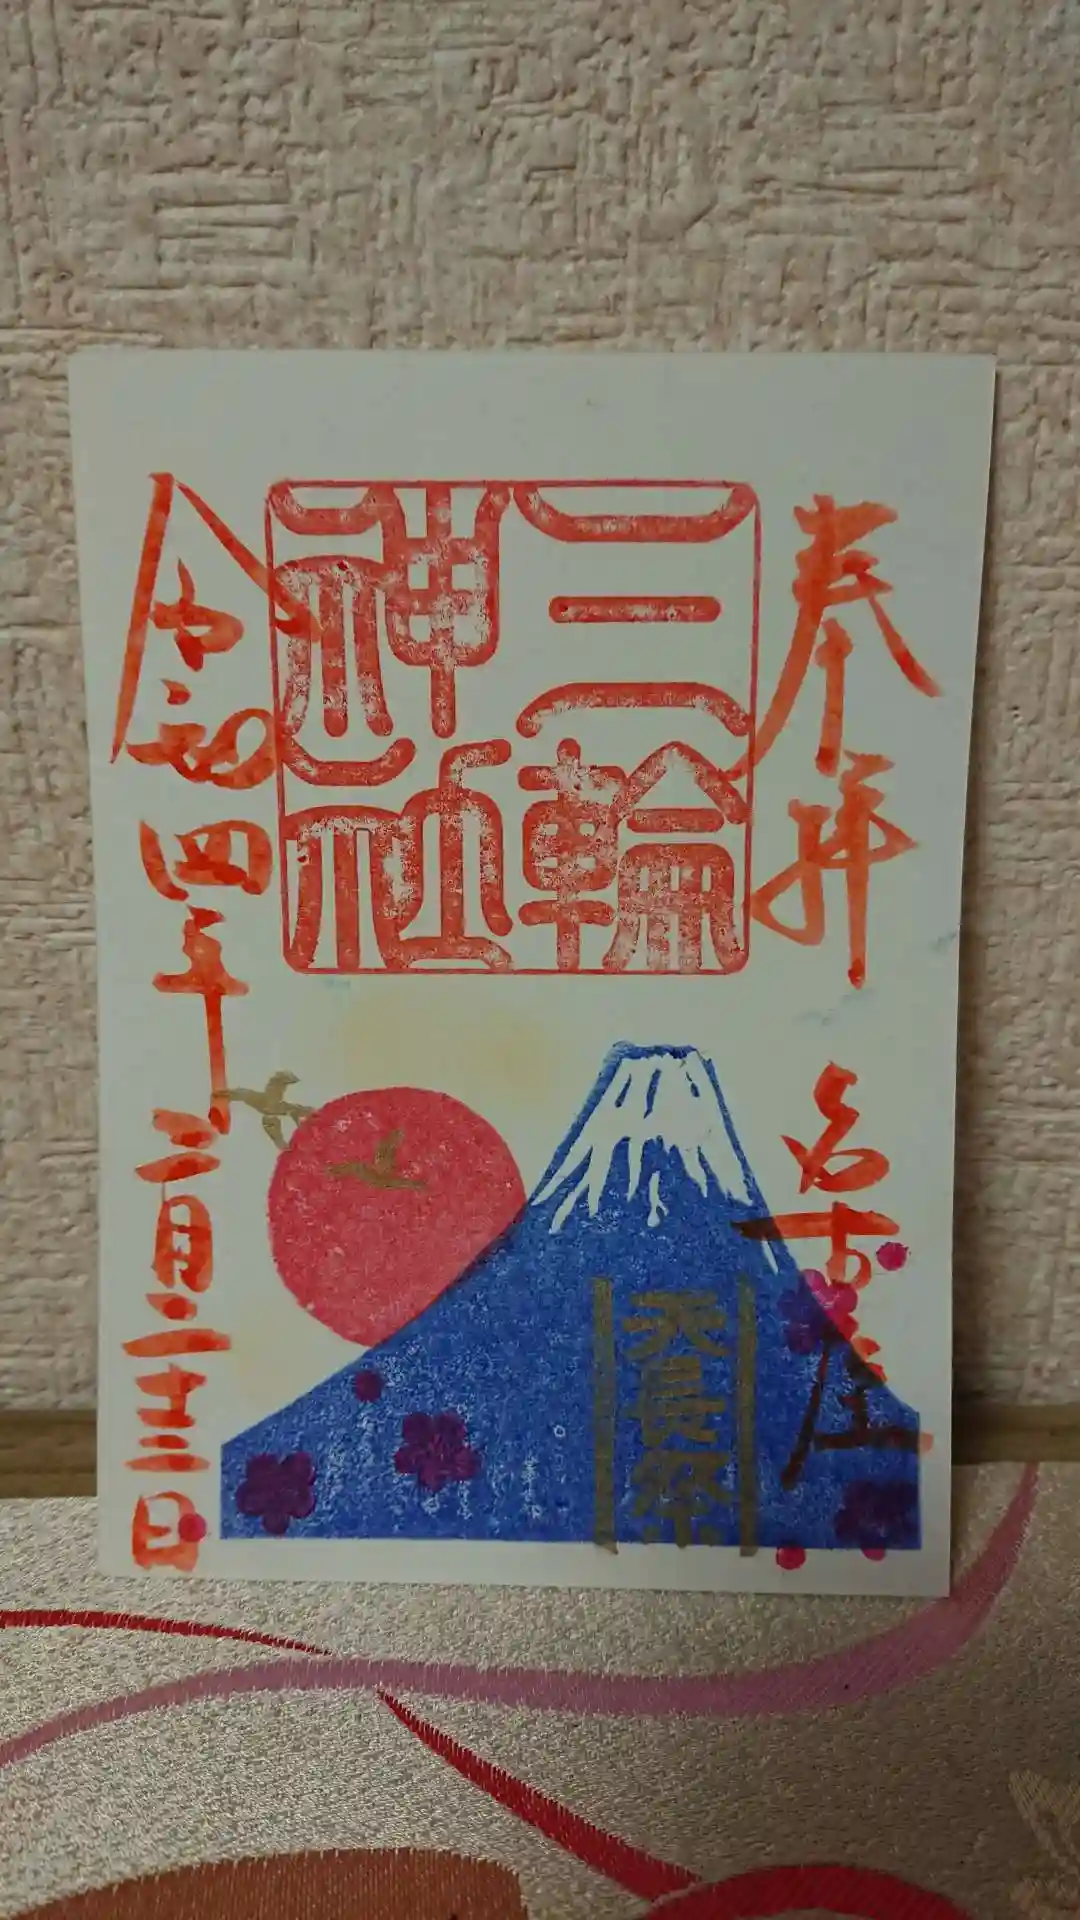 奉拝
名古屋
三輪
神社
天長祭
令和四年二月二十三日